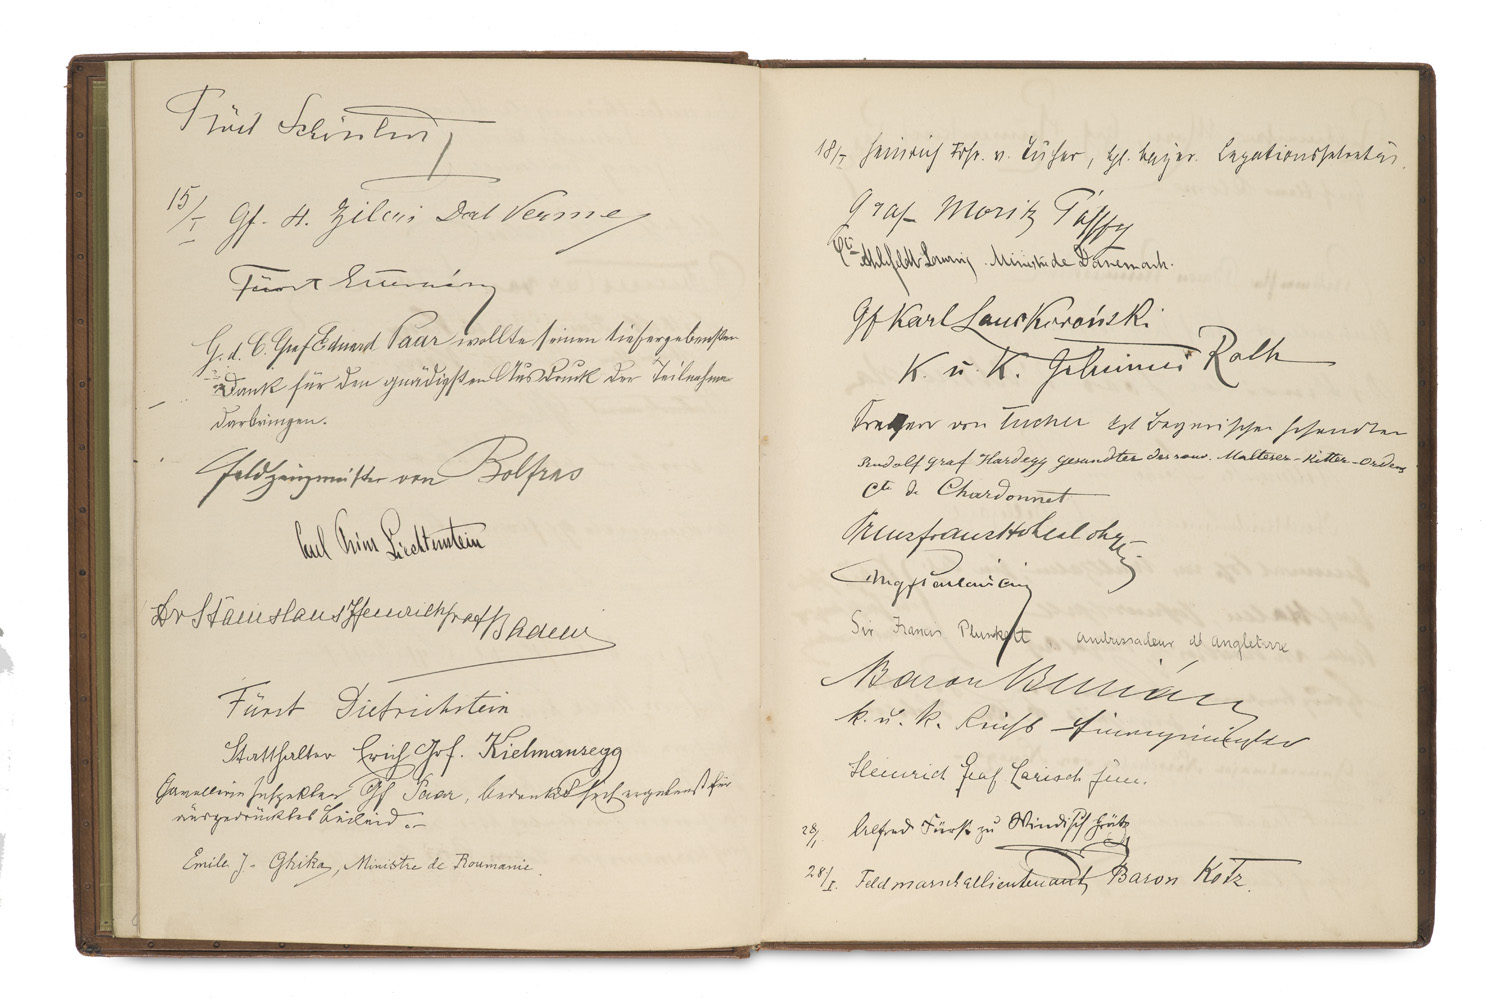 Fürst Schönburg
15/I Gf. H. Zileri Dal Verme
Fürst
G. d. C. Graf Eduard Paar wollte seinen tiefergebensten
Dank für den gnädigsten Ausdruck der Teilnahme
darbringen.
Feldzeugmeister von Bolfras
Carl Prinz Liechtenstein
Dr Stanislaus Heinrich Graf Badeni
Fürst Dietrichstein
Statthalter Erich Grf. Kielmansegg
Gf Paar, ergebenst für
ausgedrücktes Beileid.
Emile J. Ghika, Ministre de Roumanie.
18/I Heinrich Frhr. v. Tücher, kgl. bayer. Legationssekretär.
Graf Moritz Pálffy
Cte Ahlefeldt-Laurvig. Ministre de Danemark.
Gf Karl Lanckoroński
K. u. K. Geheimer Rath
Freiherr von Tucher kgl Bayerischer Gesandter
Rudolf Graf Hardegg Gesandter des souv. Malteser-Ritter-Ordens
Cte de Chardonnet
Prinz Franz Hohenlohe
Sir Francis Plunkett, ambassadeur d'Angleterre
Baron Burián
k. u. k. Reichs Finanzminister
Heinrich Graf Larisch jun.
28/I Alfred Fürst zu Windisch Grätz
28/I. Feldmarschallieutenant Baron Kotz.